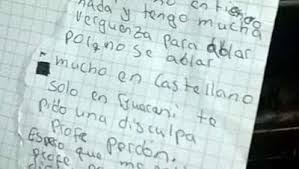 no entiendo
nada y tengo mucha
verguenza para ablar
porqno se ablar
mucho en Castellano
solo en Guarani te
pido una disculpa
Profe perdon.
Espero que me
profe